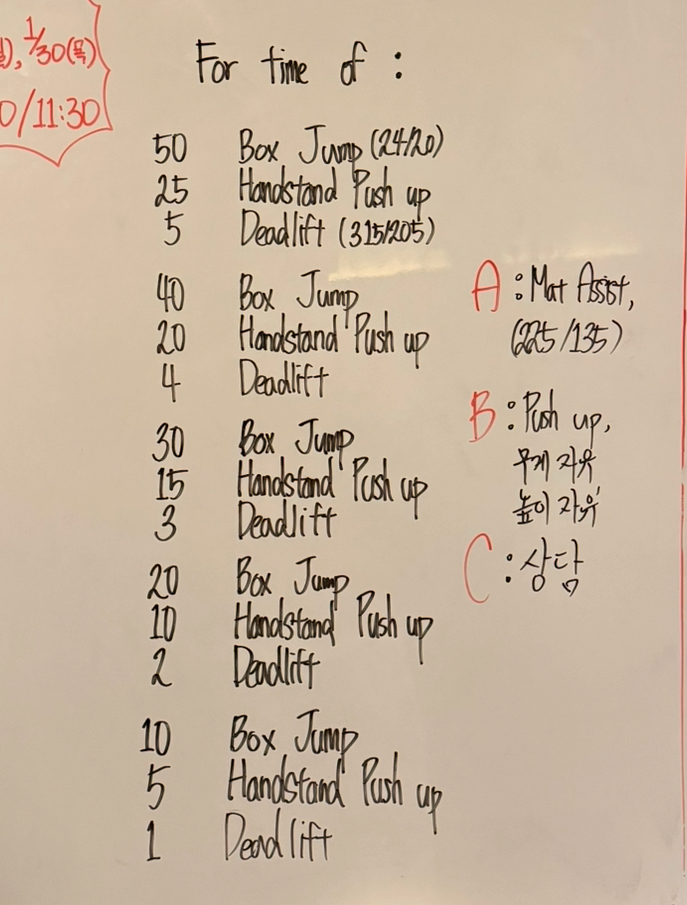 1/30(목)
0/11:30
For time of :
50 Box Jump (24/20)
25 Handstand Push up
5 Deadlift (315/205)
40 Box Jump
20 Handstand Push up
4 Deadlift
30 Box Jump
15 Handstand Push up
3 Deadlift
20 Box Jump
10 Handstand Push up
2 Deadlift
10 Box Jump
5 Handstand Push up
1 Deadlift
A : Mat Assist,
(225/135)
B : Push up,
무게 자유,
높이 자유
C : 상담